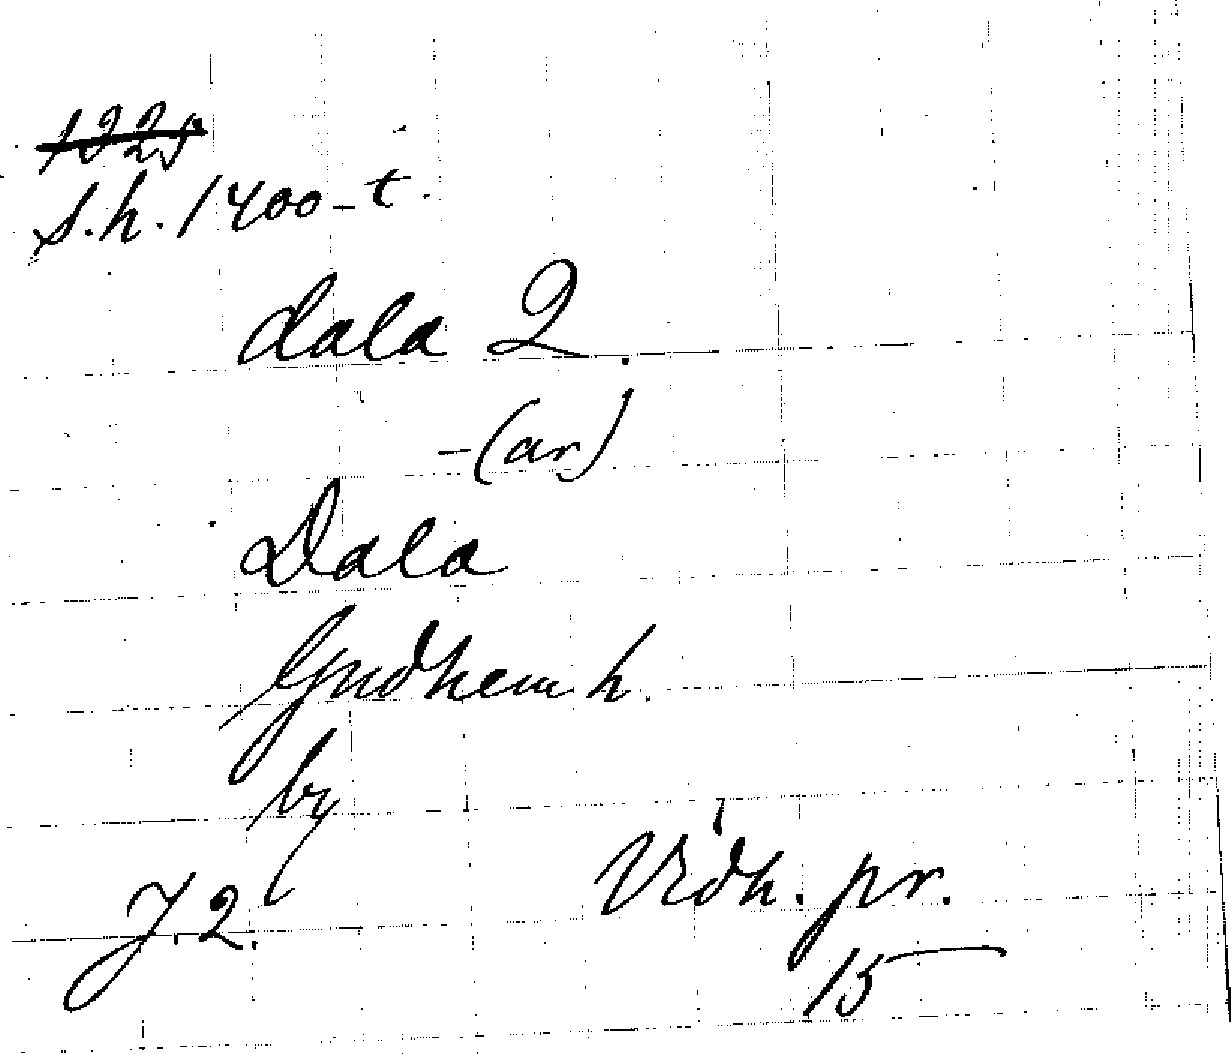 1325
s.h. 1400-t.
dala 2.
-(ar)
Dala
Gudhem h.
by
J. 2.
Vidh. pr.
15